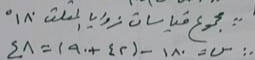 ∵ مجموع قياسات زوايا المثلث ١٨٠°
∴ س = ١٨٠ - (٤٢ + ٩٠) = ٤٨